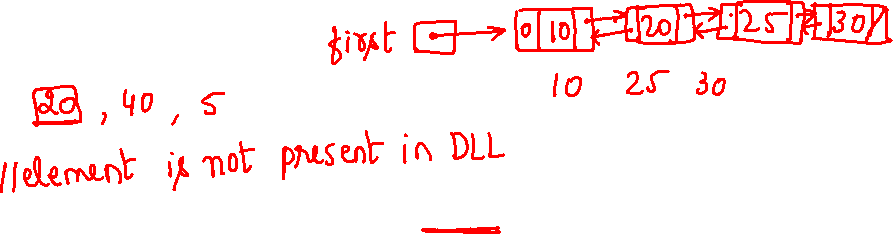 first 0 10 20 25 30/
10 25 30
20, 40, 5
//element is not present in DLL